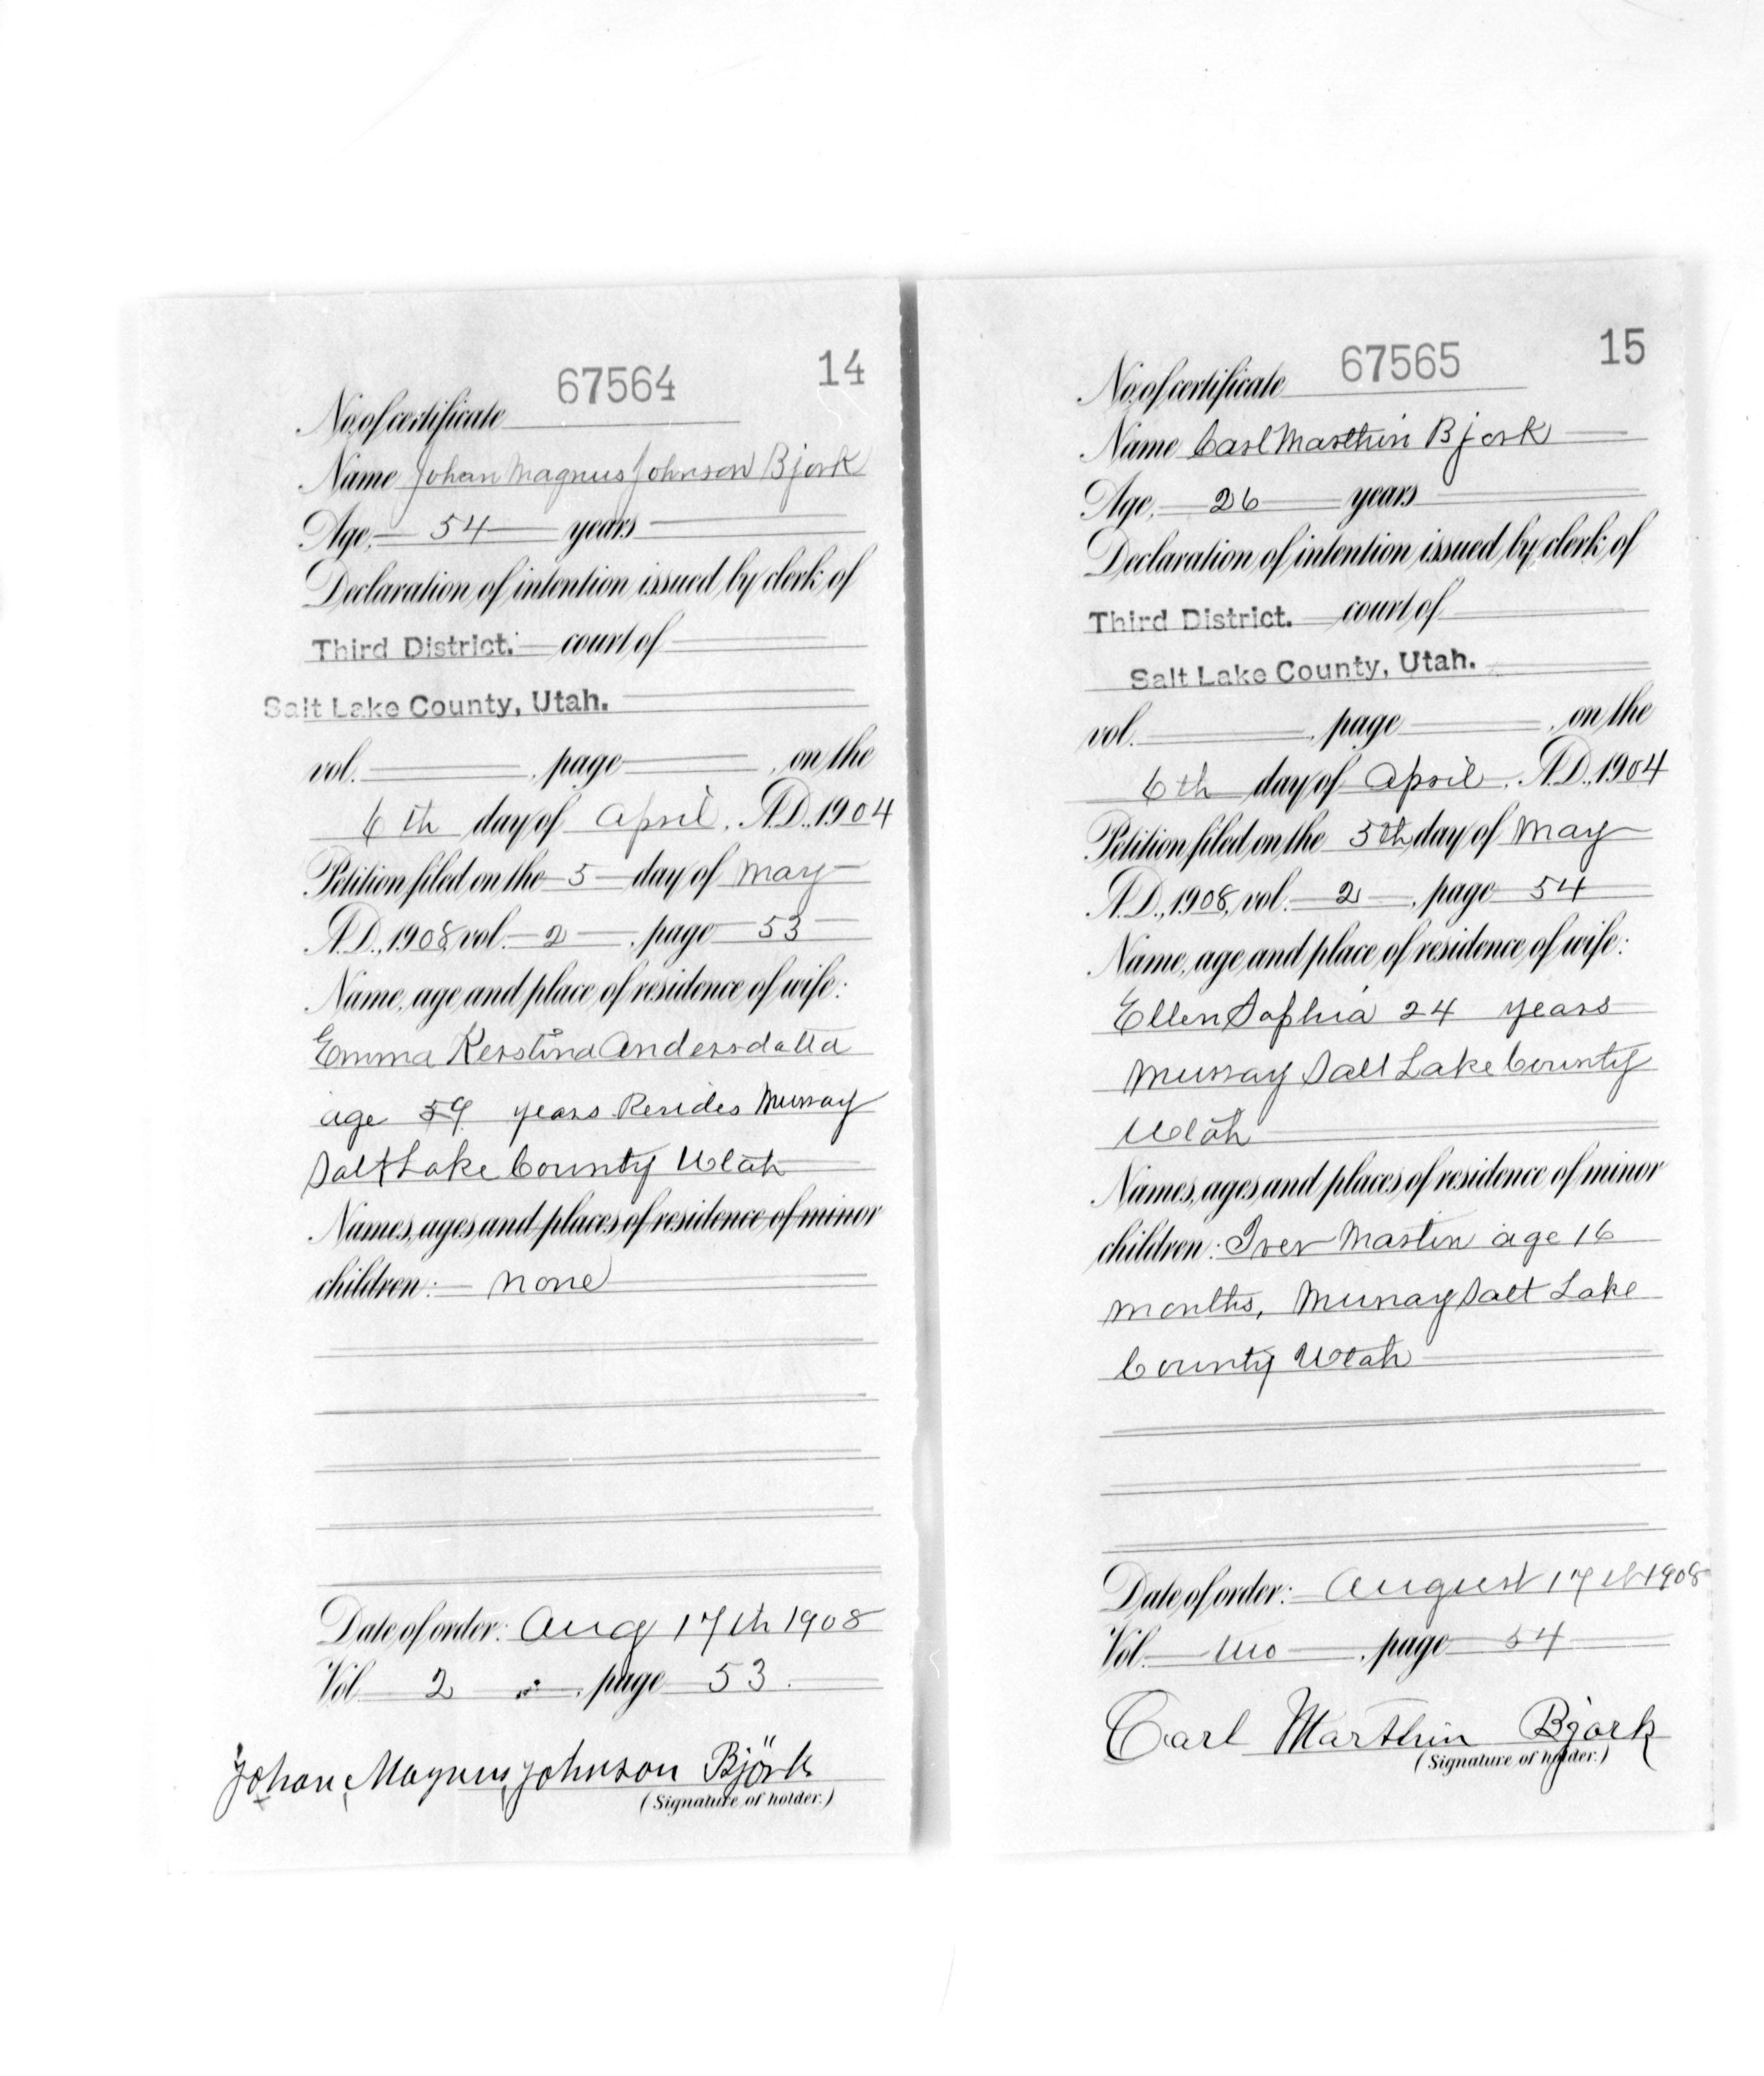 67564 14
No. of certificate
Name Johan Magnus Johnson Bjork
Age, 54 years
Declaration of intention issued by clerk of
Third District. court of
Salt Lake County, Utah.
vol. , page , on the
6th day of April, A.D., 1904
Petition filed on the 5 day of May
A.D., 1908, vol. 2, page 53
Name, age and place of residence of wife:
Emma Kerstina Andersdatta
age 59 years Resides Murray
Salt Lake County Utah
Names, ages and places of residence of minor
children: none
Date of order: Aug 17th 1908
Vol. 2, page 53.
Johan Magnus Johnson Björk
(Signature of holder.)
67565 15
No. of certificate
Name Carl Marthin Bjork
Age, 26 years
Declaration of intention issued by clerk of
Third District. court of
Salt Lake County, Utah.
vol. , page , on the
6th day of April, A.D., 1904
Petition filed on the 5th day of May
A.D., 1908, vol. 2, page 54
Name, age and place of residence of wife:
Ellen Sophia 24 years
Murray Salt Lake County
Utah
Names, ages and places of residence of minor
children: Iver Martin age 16
months, Murray Salt Lake
County Utah
Date of order: August 17th 1908
Vol. two, page 54
Carl Marthin Bjork
(Signature of holder.)